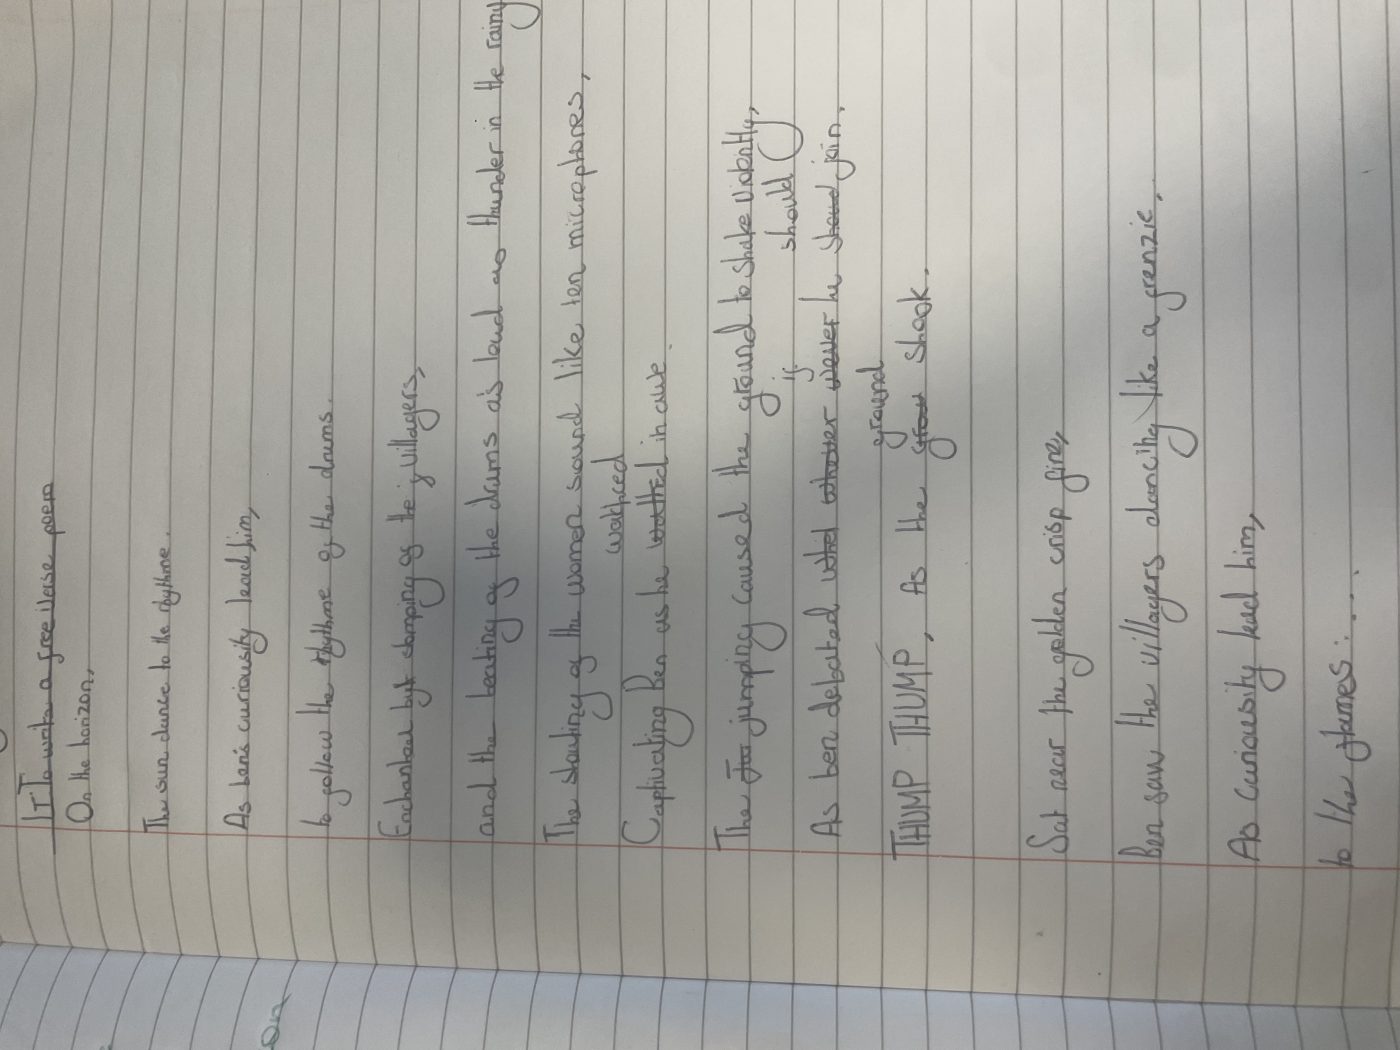 LI: To write a free verse poem
On the horizon,
The sun dance to the rhythme.
As ben's curiousity lead him,
to follow the rhythme of the drums.
Enchanted by stomping of the villagers,
and the beating of the drums as loud as thunder in the rainy
The shouting of the women sound like ten microphones,
watched
Captivating Ben as he in awe.
The jumping caused the ground to shake violently,
if should
As ben debated he join.
ground
THUMP THUMP, As the shook.
Sat near the golden crisp fire,
Ben saw the villagers dancing like a frenzie.
As Curiousity lead him,
to the flames....